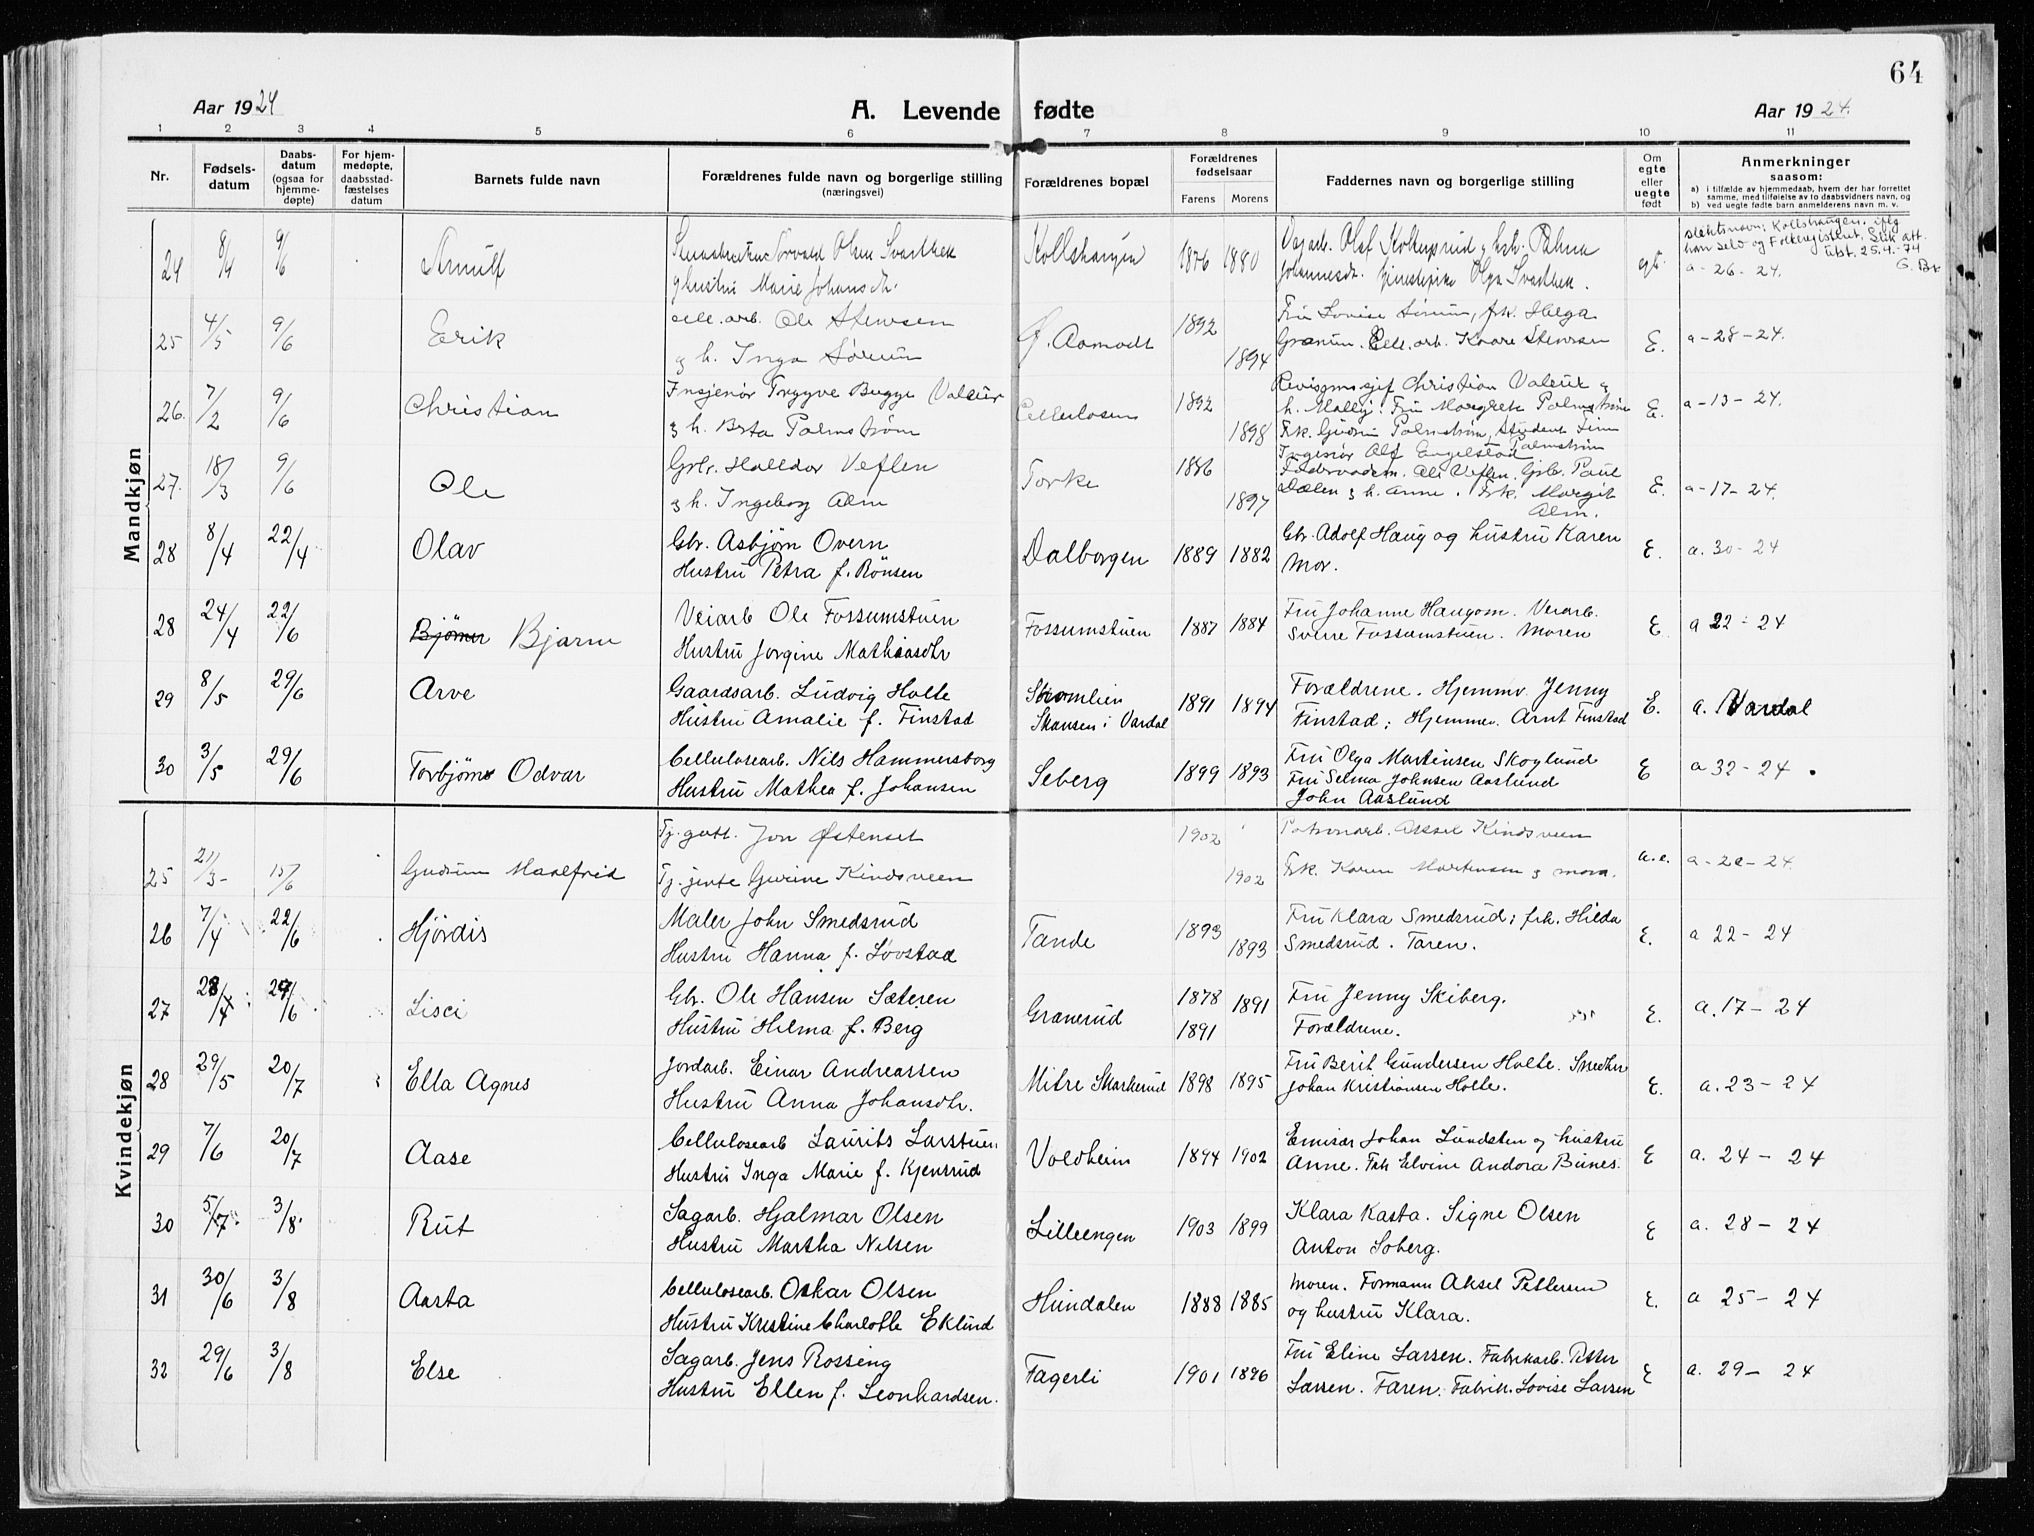 64
Aar 1924
A. Levende fødte
Aar 1924.
1 2 3 4 5 6 7 8 9 10 11
Nr.
Fødsels-
datum
Daabs-
datum
(ogsaa for
hjemme-
døpte)
For hjem-
medøpte,
daabsstad-
fæstelses
datum
Barnets fulde navn
Forældrenes fulde navn og borgerlige stilling
(næringsvei)
Forældrenes bopæl
Forældrenes
fødselsaar
Farens Morens
Faddernes navn og borgerlige stilling
Om
egte
eller
uegte
født
Anmerkninger
saasom:
a) i tilfælde av hjemmedaab, hvem der har forrettet
samme, med tilføielse av to daabsvidners navn, og
b) ved uegte fødte barn anmelderens navn m. v.
Mandkjøn
24 8/4 9/6 Arnulf
Torvald Olsen Svartbek
og hustru Marie Johansdtr.
Kollshaugen 1876 1880
Olaf Kolterud
Johannesdtr. Olga Svartbek.
egte
slektsnavn: Kollshaugen. iflg
han selv og Folkeregisteret. Slik att.
utst. 25.4.-74
G. Br
a-26-24.
25 4/5 9/6 Erik
cell.arb. Ole Stensen
og h. Inga Sørum
Aamodt 1892 1894
Fru Lovise Sørum, frk. Helga
Granum. Cell.arb. Kaare Stensen
E. a-28-24.
26. 7/2 9/6 Christian
Insjeniør Trygve Bugge Valeur
og h. Berta Palmstrøm
Cellulosen 1892 1898
Christian Valeur og
h. Mally. Fru Margrete Palmstrøm
Frk. Gudrun Palmstrøm, Student
Palmstrøm
Ingeniør Olf Engelstad
E. a-13-24.
27. 18/3 9/6 Ole
Grbr. Halldor Veflen
og h. Ingeborg Alm
Torke 1886 1897
Ole Veflen. Grb. Paul
Dalen og h. Anne. Frk. Margit
Alm.
E. a-17-24.
28 8/4 22/4 Olav
Gbr. Asbjørn Overn
Hustru Petra f. Rönsen
Dalborgen 1889 1882
Gbr. Adolf Haug og hustru Karen
Mor.
E. a. 30-24
28 24/4 22/6 Bjarne
Veiarb Ole Fossumstuen
Hustru Jorgine Mathiasdtr
Fossumstuen 1887 1884
Fru Johanne Haugom. Veiarb.
Sverre Fossumstuen. Moren
E. a 22-24
29 8/5 29/6 Arve
Gaardsarb. Ludvig Holte
Hustru Amalie f. Finstad
Skansen i Vardal 1891 1894
Forældrene. Hjemmv. Jenny
Finstad; Hjemmev. Arnt Finstad
E. a. Vardal
30 3/5 29/6 Torbjørn Odvar
Cellulosearb. Nils Hammersborg
Hustru Mathea f. Johansen
Seberg 1899 1893
Fru Olga Martinsen Skoglund
Fru Selma Johnsen Aaslund
John Aaslund
E a 32-24.
Kvindekjøn
25 21/3 15/6 Gudrun Maalfrid
Tj.gutt. Jon Østenset
Tj.jente Gurine Kindsveen
1902 1902
Aksel Kindsveen
Frk. Karen Martinsen og mora.
u.e. a-20-24.
26 7/4 22/6 Hjørdis
Maler John Smedsrud
Hustru Hanna f. Løvstad
Tande 1893 1893
Fru Klara Smedsrud; frk. Hilda
Smedsrud. Faren.
E. a 22-24
27 28/4 29/6 Lisci
Gbr. Ole Hansen Sæteren
Hustru Hilma f. Berg
Granerud 1878 1891
1891
Fru Jenny Skiberg.
Forældrene.
E. a. 17-24
28 29/5 20/7 Ella Agnes
Jordarb. Einar Andreassen
Hustru Anna Johansdtr.
Mitre Skarkerud 1898 1895
Fru Berit Gundersen Holte.
Johan Kristiansen Holte.
E. a. 23-24
29 7/6 20/7 Aase
Cellulosearb Laurits Larstuen
Hustru Inga Marie f. Kjensrud
Voldheim 1894 1902
Emisær Johan Lundsten og hustru
Anne. Frk Elvine Andora Bunes.
E a. 24-24
30 5/7 3/8 Rut
Sagarb. Hjalmar Olsen
Hustru Martha Nilsen
Lilleengen 1903 1899
Klara Kasta. Signe Olsen
Anton Soberg.
E a. 28-24
31 30/6 3/8 Aasta
Cellulosearb. Oskar Olsen
Hustru Kristine Charlotte Eklund
Hundalen 1888 1885
Moren. Formann Aksel Pettersen
og hustru Klara.
E. a 25-24
32 29/6 3/8 Else
Sagarb. Jens Rossing
Hustru Ellen f. Leonhardsen.
Fagerli 1901 1896
Fru Eline Larsen. Fabrikarb. Petter
Larsen. Faren. Fabrik. Lovise Larsen
E a. 29-24